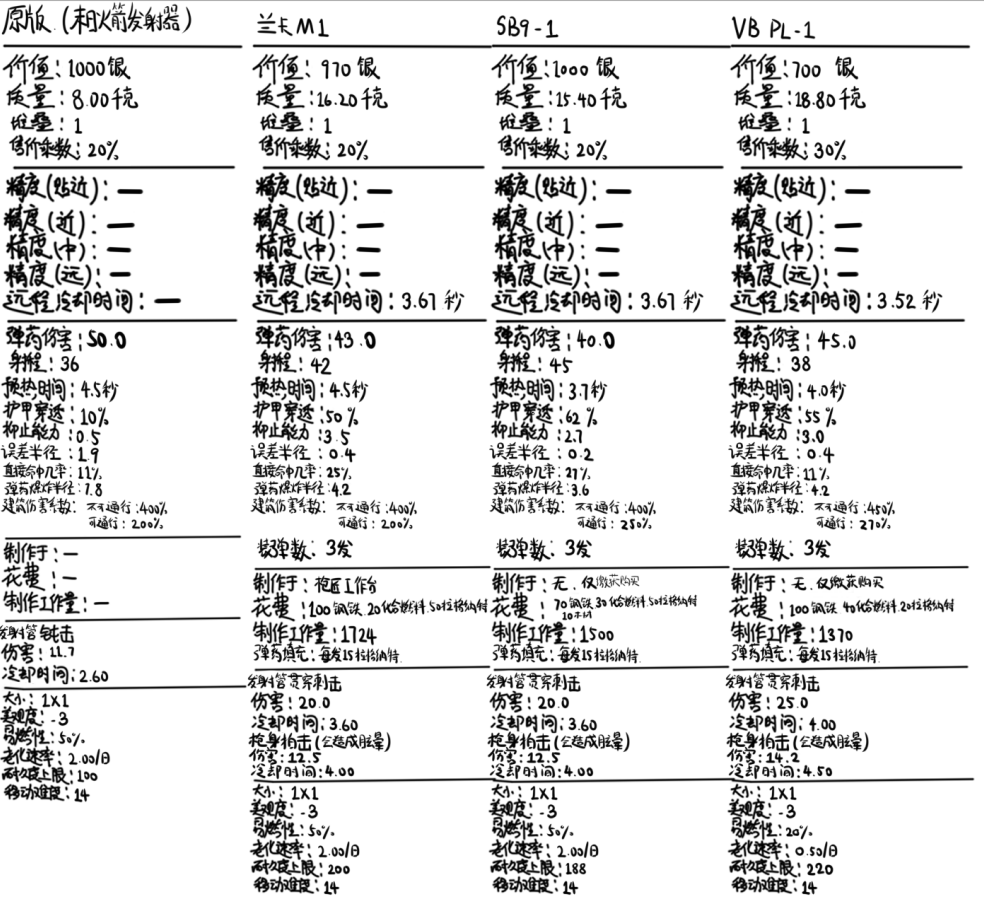 原版（末日火箭发射器）
价值：1000银
质量：8.00千克
堆叠：1
售价乘数：20%
精度(贴近)：—
精度(近)：—
精度(中)：—
精度(远)：—
远程冷却时间：—
弹药伤害：50.0
射程：36
预热时间：4.5秒
护甲穿透：10%
抑止能力：0.5
误差半径：1.9
直接命中几率：11%
弹药爆炸半径：7.8
建筑伤害系数：不可通行：400%
可通行：200%
制作于：—
花费：—
制作工作量：—
发射管钝击
伤害：11.7
冷却时间：2.60
大小：1X1
美观度：-3
易燃性：50%
老化速率：2.00/日
耐久度上限：100
移动难度：14
兰卡M1
价值：970银
质量：16.20千克
堆叠：1
售价乘数：20%
精度(贴近)：—
精度(近)：—
精度(中)：—
精度(远)：—
远程冷却时间：3.67秒
弹药伤害：43.0
射程：42
预热时间：4.5秒
护甲穿透：50%
抑止能力：3.5
误差半径：0.4
直接命中几率：25%
弹药爆炸半径：4.2
建筑伤害系数：不可通行：400%
可通行：200%
装弹数：3发
制作于：枪匠工作台
花费：100钢铁 20化合燃料 50拉格纳特
制作工作量：1724
弹药填充：每发15拉格纳特
发射管贯穿刺击
伤害：20.0
冷却时间：3.60
枪身拍击(会造成眩晕)
伤害：12.5
冷却时间：4.00
大小：1X1
美观度：-3
易燃性：50%
老化速率：2.00/日
耐久度上限：200
移动难度：14
SB9-1
价值：1000银
质量：15.40千克
堆叠：1
售价乘数：20%
精度(贴近)：—
精度(近)：—
精度(中)：—
精度(远)：—
远程冷却时间：3.67秒
弹药伤害：40.0
射程：45
预热时间：3.7秒
护甲穿透：62%
抑止能力：2.7
误差半径：0.2
直接命中几率：27%
弹药爆炸半径：3.6
建筑伤害系数：不可通行：400%
可通行：250%
装弹数：3发
制作于：无，仅缴获购买
花费：70钢铁 30化合燃料 50拉格纳特
制作工作量：1500
弹药填充：每发15拉格纳特
发射管贯穿刺击
伤害：20.0
冷却时间：3.60
枪身拍击(会造成眩晕)
伤害：12.5
冷却时间：4.00
大小：1X1
美观度：-3
易燃性：50%
老化速率：2.00/日
耐久度上限：188
移动难度：14
VB PL-1
价值：700银
质量：18.80千克
堆叠：1
售价乘数：30%
精度(贴近)：—
精度(近)：—
精度(中)：—
精度(远)：—
远程冷却时间：3.52秒
弹药伤害：45.0
射程：38
预热时间：4.0秒
护甲穿透：55%
抑止能力：3.0
误差半径：0.4
直接命中几率：11%
弹药爆炸半径：4.2
建筑伤害系数：不可通行：450%
可通行：270%
装弹数：3发
制作于：无，仅缴获购买
花费：100钢铁 40化合燃料 20拉格纳特
制作工作量：1370
弹药填充：每发15拉格纳特
发射管贯穿刺击
伤害：25.0
冷却时间：4.00
枪身拍击(会造成眩晕)
伤害：14.2
冷却时间：4.50
大小：1X1
美观度：-3
易燃性：20%
老化速率：0.50/日
耐久度上限：220
移动难度：14